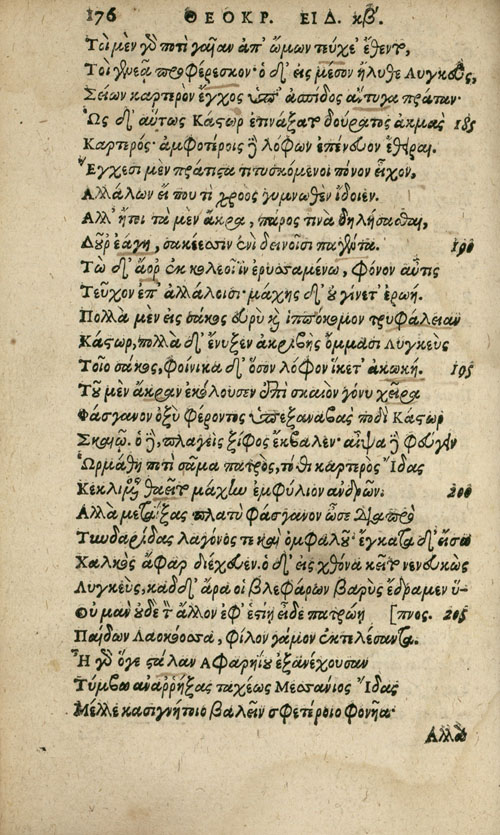 176 ΘΕΟΚΡ. ΕΙΔ. κβ.
Τοὶ μὲν γὸ ποτὶ γαῖαν ἀπ' ὤμων τεύχε' ἔθεντο,
Τοὶ γενεᾷ προφέρεσκον· ὁ δ' εἰς μέσον ἤλυθε Λυγκεὺς,
Σείων καρτερὸν ἔγχος ὑπ' ἀσπίδος ἄντυγα πράταν·
Ὣς δ' αὔτως Κάστωρ ἐτινάξατο δούρατος ἀκμὰς 185
Καρτερός· ἀμφοτέροις δὲ λόφων ἐπένευον ἔθειραι.
Ἔγχεσι μὲν πράτιστα τιτυσκόμενοι πόνον εἶχον,
Αλλάλων εἴ που τι χροὸς γυμνωθὲν ἴδοιεν.
Αλλ' ἤτοι τὰ μὲν ἄκρα, πάρος τινὰ δηλήσασθαι,
Δοῦρ' ἐάγη, σακέεσσιν ἐνὶ δεινοῖσι παγέντα. 190
Τὼ δ' ἄορ ἐκ κολεοῖϊν ἐρυσσαμένω, φόνον αὖτις
Τεῦχον ἐπ' ἀλλάλοισι· μάχης δ' οὐ γίνετ' ἐρωή.
Πολλὰ μὲν εἰς σάκος εὐρὺ καὶ ἱππόκομον τρυφάλειαν
Κάστωρ, πολλὰ δ' ἔνυξεν ἀκριβὴς ὄμμασι Λυγκεὺς
Τοῖο σάκος, φοίνικα δ' ὅσον λόφον ἵκετ' ἀκωκή. 195
Τοῦ μὲν ἄκραν ἐκόλουσεν ἐπὶ σκαιὸν γόνυ χεῖρα
Φάσγανον ὀξὺ φέροντος ὑπεξαναβὰς ποδὶ Κάστωρ
Σκαιῷ. ὁ δὲ, πλαγεὶς ξίφος ἔκβαλεν· αἶψα δὲ φεύγειν
Ὡρμάθη ποτὶ σᾶμα πατρὸς, τόθι καρτερὸς Ἴδας
Κεκλιμένος θαεῖτο μάχην ἐμφύλιον ἀνδρῶν. 200
Αλλὰ μεταΐξας πλατὺ φάσγανον ὦσε διαπρὸ
Τυνδαρίδας λαγόνος τε καὶ ὀμφαλοῦ· ἔγκατα δ' εἴσω
Χαλκὸς ἄφαρ διέχευεν. ὁ δ' εἰς χθόνα κεῖτο νενευκὼς
Λυγκεὺς, καδδ' ἄρα οἱ βλεφάρων βαρὺς ἔδραμεν ὕ-
Οὐ μὰν οὐδὲ τ ἄλλον ἐφ' ἑστίῃ εἶδε πατρῴη [πνος. 205
Παίδων Λαοκόωσα, φίλον γάμον ἐκτελέσαντα.
Ἦ γὸ ὅγε στάλαν Αφαρηΐου ἐξανέχουσαν
Τύμβω ἀναῤῥήξας ταχέως Μεσσάνιος Ἴδας
Μέλλε κασιγνήτοιο βαλεῖν σφετέροιο φονῆα·
Αλλὰ